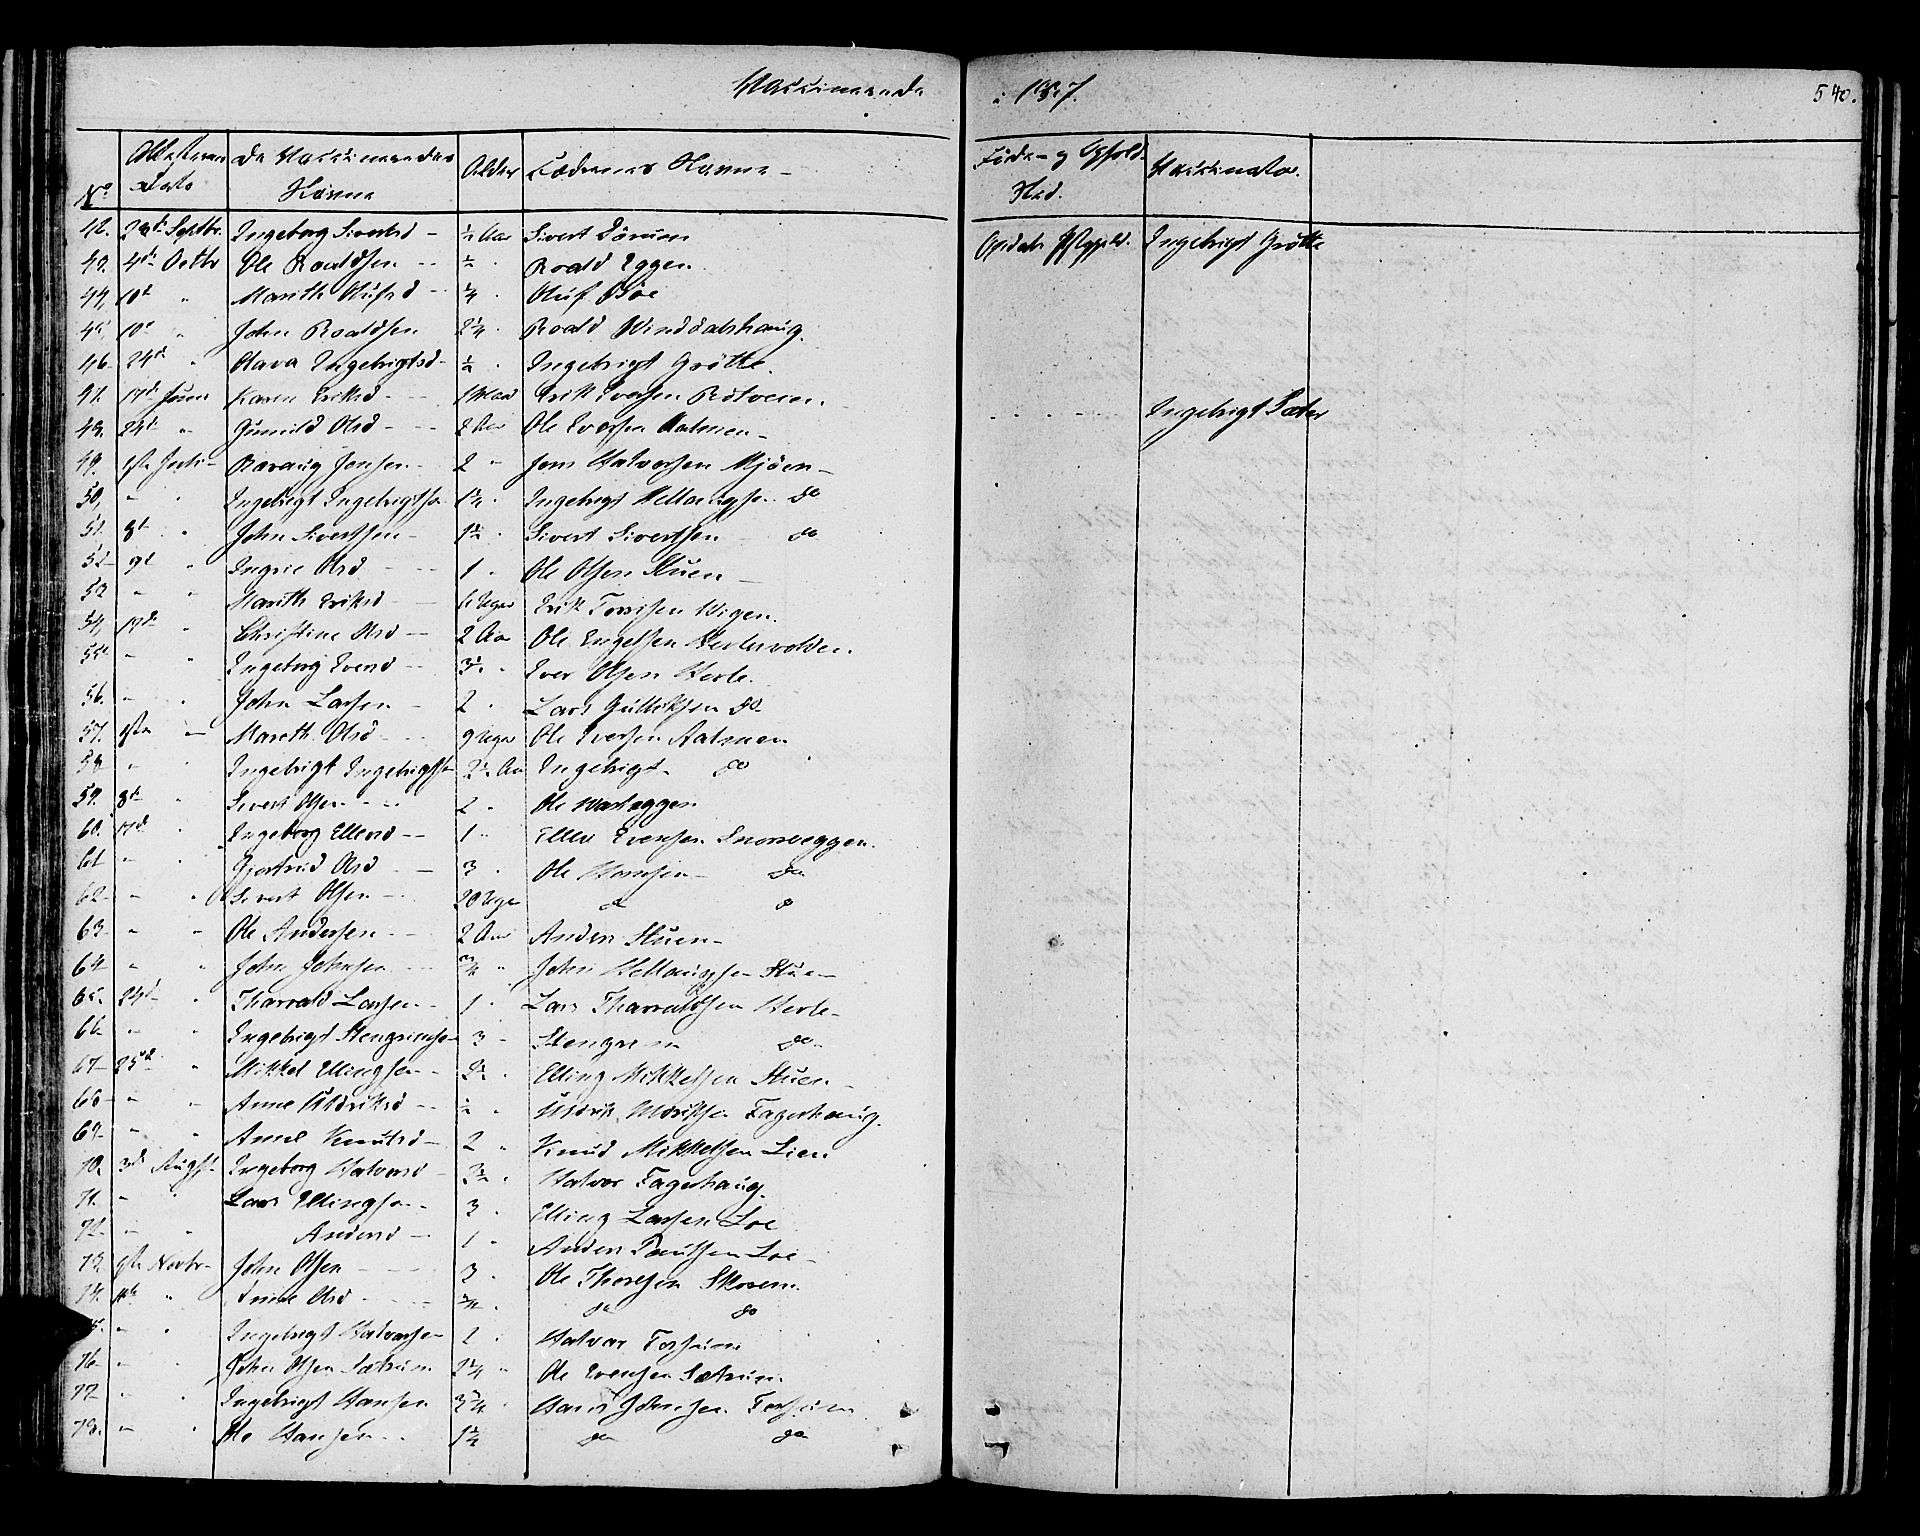 Vaccinerede i 1837. 540.
No Attestens Dato De Vaccineredes Navne Alder Fædrenes Navne Føde- og Opholds Sted. Vaccinator.
42. 29de Septbr. Ingeborg Sivertsd - 1/2 Aar Sivert Dørum Opdals Ingebrigt Grøtte
43. 4de Octbr Ole Roaldsen - - 1/2 Roald Eggen
44. 10d " Marith Olufsd - 1/4 Oluf Böe
45. 10d " John Roaldsen 2 1/4 Roald Winddalshaug.
46. 24d " Olava Ingebrigtsd - 1/2 Ingebrigt Grøtte.
47. 17d Juni Karen Eriksd - - Erik Iversen Ingebrigt Sæter
48. 24d " Gunild Olsd - - - 2 Aar Ole Iversen Aalmen -
49. 1ste Juli Jonsen - 2 " Jons Halvorsen Mjöen -
50. " " Ingebrigt Ingebrigtsen 1 1/4 Ingebrigt Hellaugsen do
51. 8d " John Sivertsen - 1 1/2 Sivert Sivertsen do
52 9d " Olsd - - - 1 " Ole Olsen Stuen -
53 " " Marith Eriksd - 6 Uger Erik Torrisen Wigen.
54. 17d " Christine Olsd - - 2 Aar Ole Engelsen Herlevolden.
55. " " Ingeborg Iversd - - 3 1/2 " Iver Olsen Herle.
56. " " John Larsen - 2 " Lars Gulliksen do
57. 1ste - Mareth Olsd - - 9 Uger Ole Iversen Aalmen
58 " " Ingebrigt Ingebrigtsen 2 1/2 Aar Ingebrigt do
59. 8d " Sivert Olsen - - - 2 " Ole
60. 17d " Ingeborg Ellevsd - - 1 " Ellev Evensen Snoeseggen.
61 " " Gjertrud Olsd - 3 " Ole Hansen - do
62 " " Sivert Olsen - - 20 Uger do do
63 " " Ole Andersen - - 2 Aar Anders Stuen -
64 " " John Johnsen - - 3/4 " John Hellaugsen Stuen
65. 24d " Tharrald Larsen - 1 " Lars Tharraldsen Herle -
66 " " Ingebrigt Stengrimsen 3 - Stengrim do
67 25d " Mikkel Ellingsen - 2 1/2 " Elling Mikkelsen Stuen -
68 " " Anne Uldriksd - - 1/2 " Uldrik Uldriksen Fagerhaug.
69 " " Anne Knutsd - 2 " Knud Mikkelsen Lien
70. 3d August Ingeborg Halvorsd - 3 1/2 " Halvor Fagerhaug.
71. " " Lars Ellingsen - 3 " Elling Larsen Loe
72 " " Andersd - 1 " Anders Paulsen Loe -
73. Novbr John Olsen - - - 3 " Ole Thoresen
74. " Anne Olsd - - - 3/4 " do do
75. " " Ingebrigt Halvorsen 2 " Halvor Forsum
76 " " John Olsen Sætrum 2 1/4 " Ole Evensen Sætrum.
77 " " Ingebrigt Hansen 3 3/4 " Hans Johnsen Forsum
78. " " Ole Hansen - - 1 1/2 do do